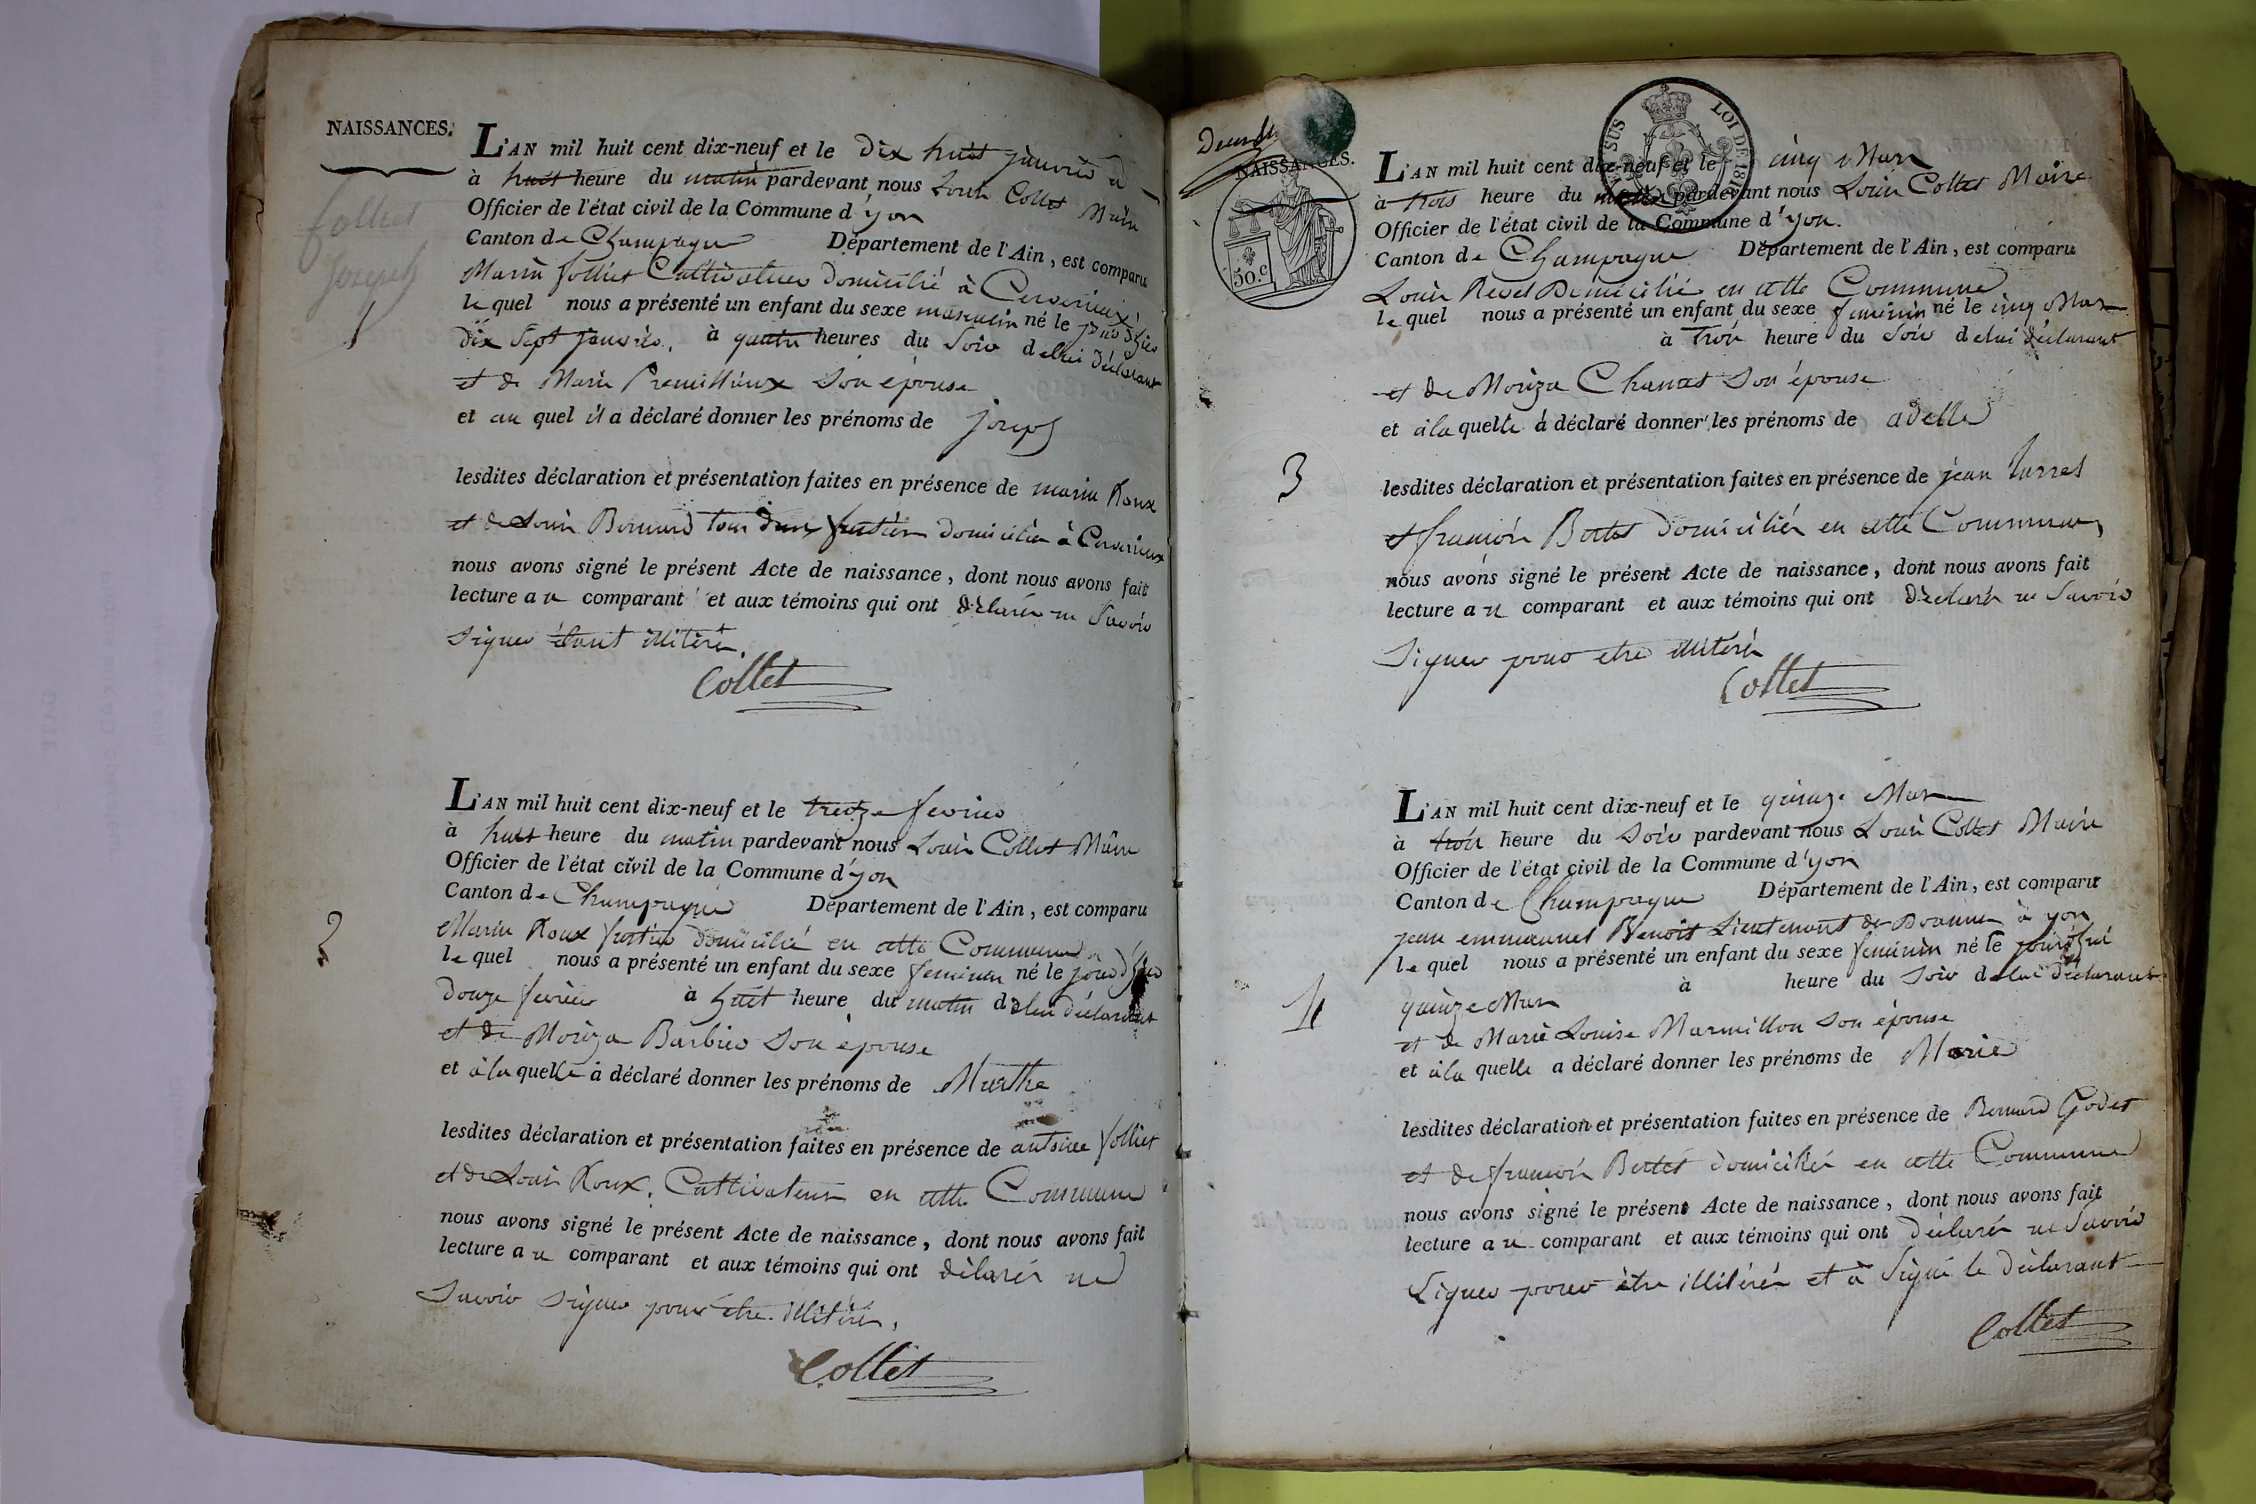 NAISSANCES.
folliet
Joseph
1
L'AN mil huit cent dix-neuf et le Dix huit janvier
à huit heure du matin pardevant nous Louis Collet Maire
Officier de l'état civil de la Commune d'yon
Canton de Champagne Département de l'Ain, est comparu
Marin folliet Cultivateur domicilié à Cerverieux
lequel nous a présenté un enfant du sexe masculin né le jour d'hier
dix Sept janvier, à quatre heures du Soir de lui déclarant
et de Marie Premillieux son épouse
et au quel il a déclaré donner les prénoms de joseph
lesdites déclaration et présentation faites en présence de marin Roux
et de Louis Bernard tous deux domiciliés à Cerverieux
nous avons signé le présent Acte de naissance, dont nous avons fait
lecture au comparant et aux témoins qui ont déclarés ne Savoir
signer étant illitérés.
Collet
2
L'AN mil huit cent dix-neuf et le treize fevrier
à huit heure du matin pardevant nous Louis Collet Maire
Officier de l'état civil de la Commune d'yon
Canton de Champagne Département de l'Ain, est comparu
Marin Roux domicilié en cette Commune
lequel nous a présenté un enfant du sexe feminin né le jour d'hier
douze fevrier à huit heure du matin de lui déclarant
et de Moriza Barbier son épouse
et à la quelle a déclaré donner les prénoms de Marthe
lesdites déclaration et présentation faites en présence de antoine folliet
et de Louis Roux, Cultivateurs en cette Commune
nous avons signé le présent Acte de naissance, dont nous avons fait
lecture au comparant et aux témoins qui ont déclarés ne
savoir signer pour etre illitérés.
Collet
NAISSANCES.
50.c
SUS
LOI DE 181
3
L'AN mil huit cent dix-neuf et le cinq Mars
à trois heure du pardevant nous Louis Collet Maire
Officier de l'état civil de la Commune d'yon.
Canton de Champagne Département de l'Ain, est comparu
Louis Revel Domicilié en cette Commune
lequel nous a présenté un enfant du sexe feminin né le cinq Mars
à trois heure du Soir de lui déclarant
et de Moriza Chanet son épouse
et à la quelle à déclaré donner les prénoms de adelle
lesdites déclaration et présentation faites en présence de jean
et françois Bertet domiciliés en cette Commune,
nous avons signé le présent Acte de naissance, dont nous avons fait
lecture au comparant et aux témoins qui ont déclarés ne Savoir
Signer pour etre illitérés
Collet
4
L'AN mil huit cent dix-neuf et le quinze Mars
à trois heure du Soir pardevant nous Louis Collet Maire
Officier de l'état civil de la Commune d'yon
Canton de Champagne Département de l'Ain, est comparu
jean emmanuel Benoit Lieutenant de Douanne à yon
lequel nous a présenté un enfant du sexe feminin né le
quinze Mars à heure du Soir de lui déclarant
et de Marie Louise Marmillon son épouse
et à la quelle a déclaré donner les prénoms de Marie
lesdites déclaration et présentation faites en présence de Bernard Godet
et de françois Bertet domiciliés en cette Commune
nous avons signé le présent Acte de naissance, dont nous avons fait
lecture au comparant et aux témoins qui ont déclarés ne Savoir
Signer pour être illitérés et à Signé le déclarant
Collet